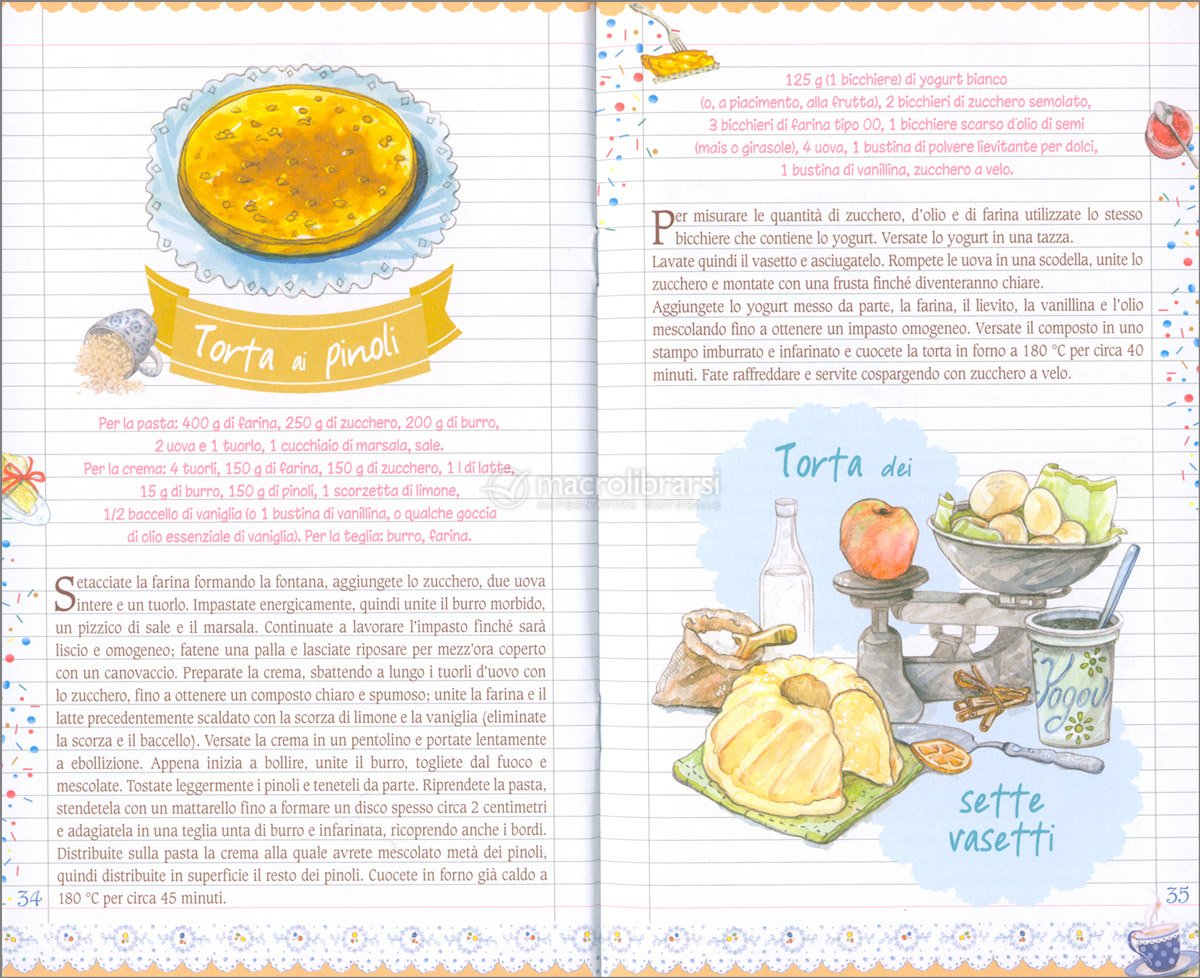 Torta ai pinoli
Per la pasta: 400 g di farina, 250 g di zucchero, 200 g di burro,
2 uova e 1 tuorlo, 1 cucchiaio di marsala, sale.
Per la crema: 4 tuorli, 150 g di farina, 150 g di zucchero, 1 l di latte,
15 g di burro, 150 g di pinoli, 1 scorzetta di limone,
1/2 baccello di vaniglia (o 1 bustina di vanillina, o qualche goccia
di olio essenziale di vaniglia). Per la teglia: burro, farina.
Setacciate la farina formando la fontana, aggiungete lo zucchero, due uova
intere e un tuorlo. Impastate energicamente, quindi unite il burro morbido,
un pizzico di sale e il marsala. Continuate a lavorare l'impasto finché sarà
liscio e omogeneo; fatene una palla e lasciate riposare per mezz'ora coperto
con un canovaccio. Preparate la crema, sbattendo a lungo i tuorli d'uovo con
lo zucchero, fino a ottenere un composto chiaro e spumoso; unite la farina e il
latte precedentemente scaldato con la scorza di limone e la vaniglia (eliminate
la scorza e il baccello). Versate la crema in un pentolino e portate lentamente
a ebollizione. Appena inizia a bollire, unite il burro, togliete dal fuoco e
mescolate. Tostate leggermente i pinoli e teneteli da parte. Riprendete la pasta,
stendetela con un mattarello fino a formare un disco spesso circa 2 centimetri
e adagiatela in una teglia unta di burro e infarinata, ricoprendo anche i bordi.
Distribuite sulla pasta la crema alla quale avrete mescolato metà dei pinoli,
quindi distribuite in superficie il resto dei pinoli. Cuocete in forno già caldo a
180 °C per circa 45 minuti.
34
125 g (1 bicchiere) di yogurt bianco
(o, a piacimento, alla frutta), 2 bicchieri di zucchero semolato,
3 bicchieri di farina tipo 00, 1 bicchiere scarso d'olio di semi
(mais o girasole), 4 uova, 1 bustina di polvere lievitante per dolci,
1 bustina di vanillina, zucchero a velo.
Per misurare le quantità di zucchero, d'olio e di farina utilizzate lo stesso
bicchiere che contiene lo yogurt. Versate lo yogurt in una tazza.
Lavate quindi il vasetto e asciugatelo. Rompete le uova in una scodella, unite lo
zucchero e montate con una frusta finché diventeranno chiare.
Aggiungete lo yogurt messo da parte, la farina, il lievito, la vanillina e l'olio
mescolando fino a ottenere un impasto omogeneo. Versate il composto in uno
stampo imburrato e infarinato e cuocete la torta in forno a 180 °C per circa 40
minuti. Fate raffreddare e servite cospargendo con zucchero a velo.
Torta dei
Yogou
sette
vasetti
35
macrolibrarsi
ALTERNATIVA NATURALE